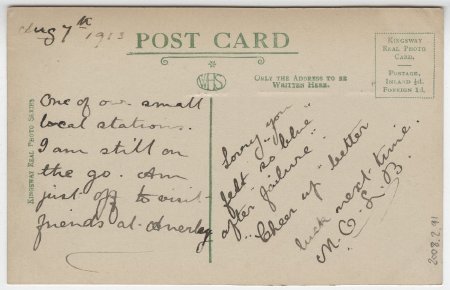 Aug 7th 1913
POST CARD
KINGSWAY
REAL PHOTO
CARD.
POSTAGE,
INLAND ½d.
FOREIGN 1d.
WHS
ONLY THE ADDRESS TO BE
WRITTEN HERE.
KINGSWAY REAL PHOTO SERIES
One of our small
local stations.
I am still on
the go. Am
just off to visit
friends at Anerley
Sorry you
felt so "blue"
after "failure".
"Cheer up" better
luck next time.
M.O.L.B.
2008.2.91